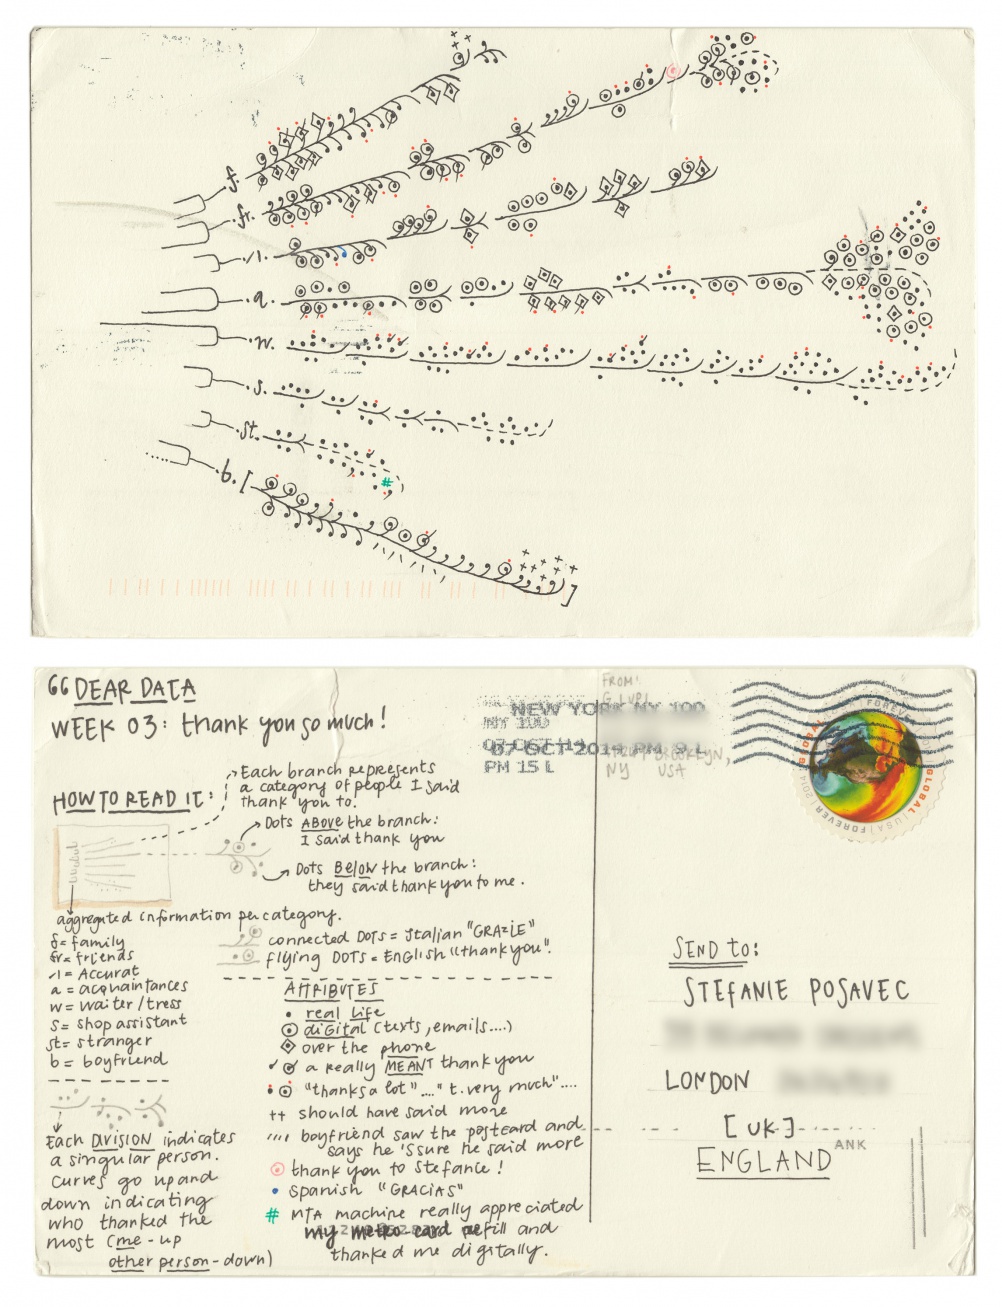 f.
fr.
.√1.
a.
w.
s.
st.
#
b. [
]
GG DEAR DATA
WEEK 03: thank you so much!
HOW TO READ IT:
Each branch represents
a category of people I said
thank you to.
Dots ABOVE the branch:
I said thank you
Dots BELOW the branch:
they said thank you to me.
aggregated information per category.
f = family
fr = friends
√1 = Accurat
a = acquaintances
w = waiter/tress
s = shop assistant
st = stranger
b = boyfriend
Each DIVISION indicates
a singular person.
Curves go up and
down indicating
who thanked the
most (me - up
other person - down)
connected DOTS = Italian "GRAZIE"
flying DOTS = ENGLISH "thank you".
ATTRIBUTES
real life
digital (texts, emails....)
over the phone
a really MEANT thank you
"thanks a lot"...." t. very much"....
++ should have said more
'''' boyfriend saw the postcard and
says he 'ssure he said more
thank you to Stefanie!
Spanish "GRACIAS"
# MTA machine really appreciated
my metro card refill and
thanked me digitally.
FROM:
G. LUPI
BROOKLYN,
NY USA
NEW YORK NY 100
NY 100
07 OCT 2014 PM 9 L
PM 15 L
GLOBAL | USA | FOREVER | 2014
SEND to:
STEFANIE POSAVEC
LONDON
[UK]
ANK
ENGLAND